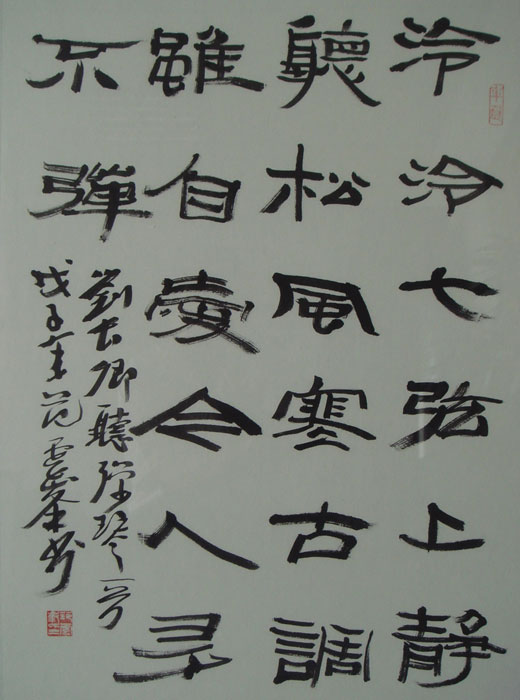 泠泠七弦上靜
聽松風寒古調
雖自愛今人多
不彈
劉長卿聽彈琴一首
戊子年范